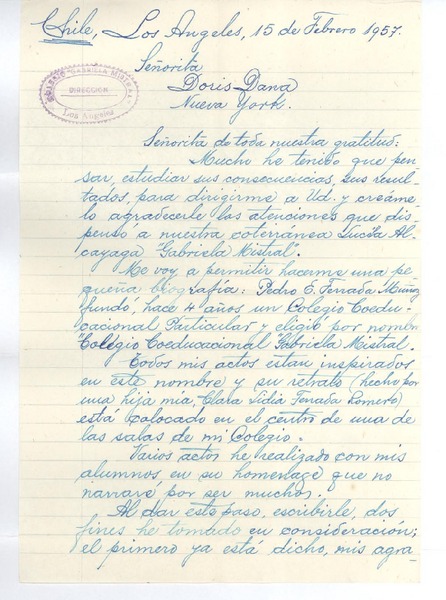 Chile, Los Angeles, 15 de Febrero 1957.
Señorita
Doris Dana
Nueva York.
"GABRIELA MISTRAL"
DIRECCION
Los Angeles
Señorita de toda nuestra gratitud:
Mucho he tenido que pen
sar, estudiar sus consecuencias, sus resul-
tados, para dirigirme a Ud. y créame
lo agradecerle las atenciones que dis
pensó a nuestra coterránea Lucila Al
cayaga "Gabriela Mistral".
Me voy a permitir hacerme una pe
queña biografía: Pedro E. Ferrada Muñoz
fundó, hace 4 años un Colegio Coedu-
cacional Particular y eligió por nombre
"Colegio Coeducacional Gabriela Mistral.
Todos mis actos estan inspirados
en este nombre y su retrato (hecho por
una hija mia, Clara Lidia Ferrada Romero)
está colocado en el centro de una de
las salas de mi Colegio.
Varios actos he realizado con mis
alumnos en su homenage que no
narraré por ser muchos.
Al dar este paso, escribirle, dos
fines he tomado en consideración;
el primero ya está dicho, mis agra